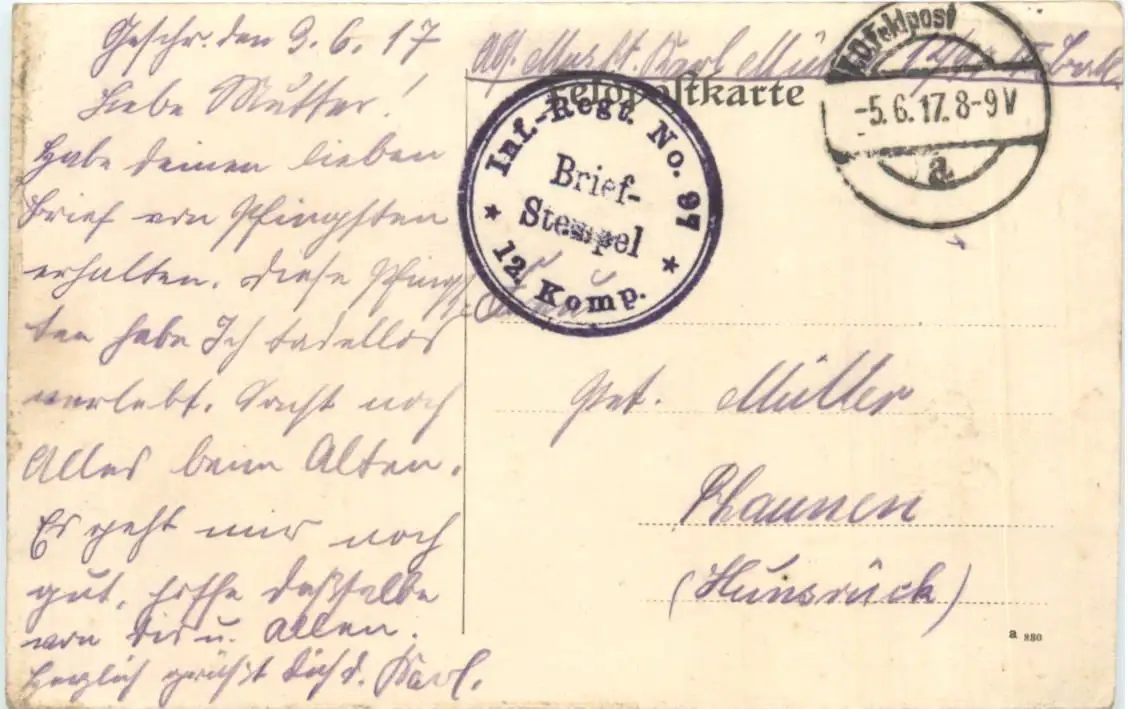 Geschr. den 3.6.17
Liebe Mutter!
Habe deinen lieben
Brief von Pfingsten
erhalten. Diese Pfings
ten habe Ich tadellos
verlebt. Sonst noch
Alles beim Alten.
Es geht mir noch
gut, hoffe dasselbe
von dir u. Allen.
Herzlich grüßt Dich d. Karl.
Abs. Musk. Karl
Feldpostkarte
Inf.-Regt. No. 97
Brief-
Stempel
12. Komp.
K.D. Feldpost
-5.6.17. 8-9V
a
Frau
Pet. Müller
Rhaunen
(Hunsrück)
a 880